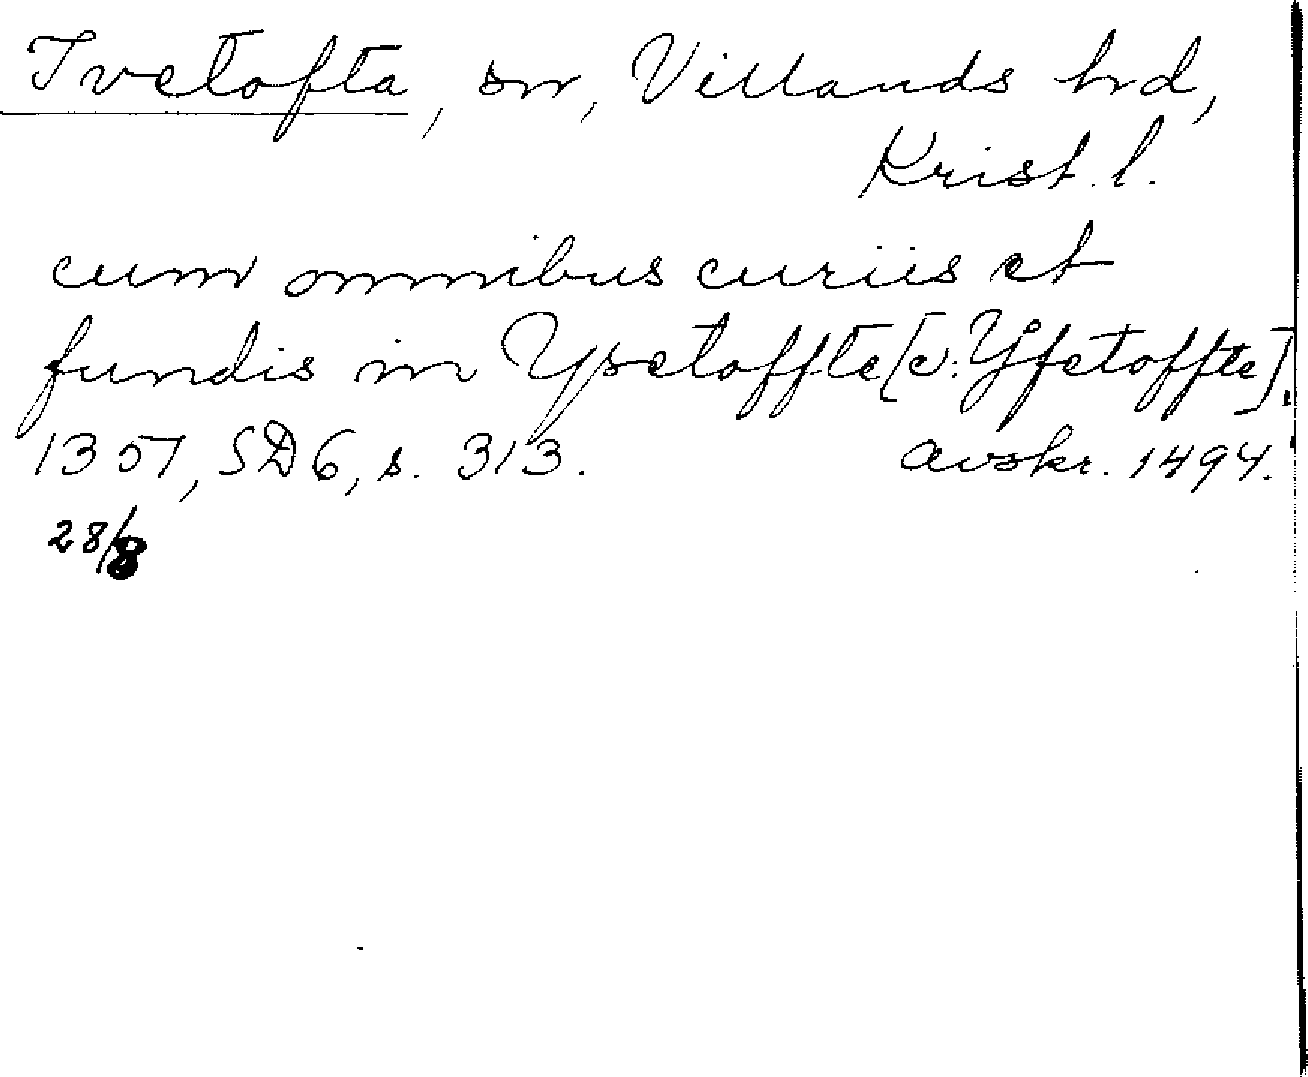 Ivetofta, sn, Villands hd,
Krist. l.
cum omnibus curiis et
fundis in Ypetoffte [e. Yfetoffte].
1351, SD 6, s. 313. Avskr. 1494.
28/8